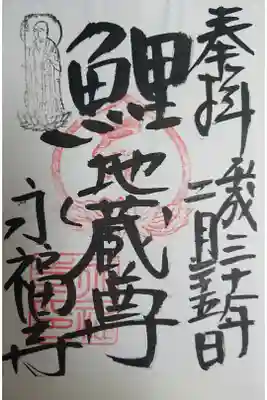 奉拝
平成三十年
二月二十五日
鯉地蔵尊
永福寺